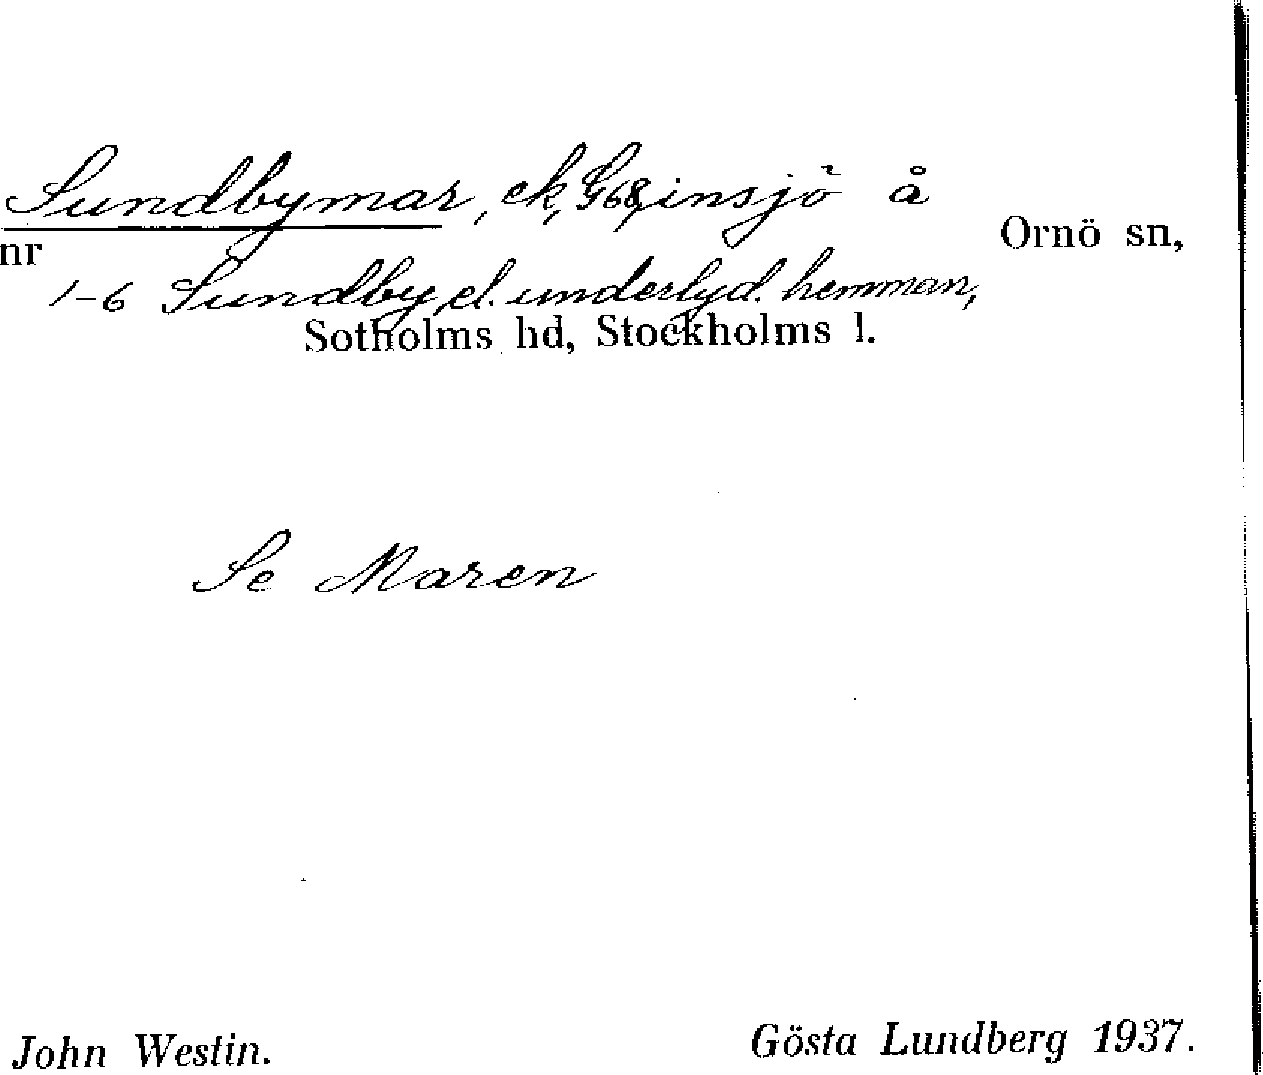 Sundbymar, ek, G68, insjö å Ornö sn,
nr 1-6 Sundby, el. underlyd. hemman,
Sotholms hd, Stockholms l.
Se Maren
John Westin. Gösta Lundberg 1937.